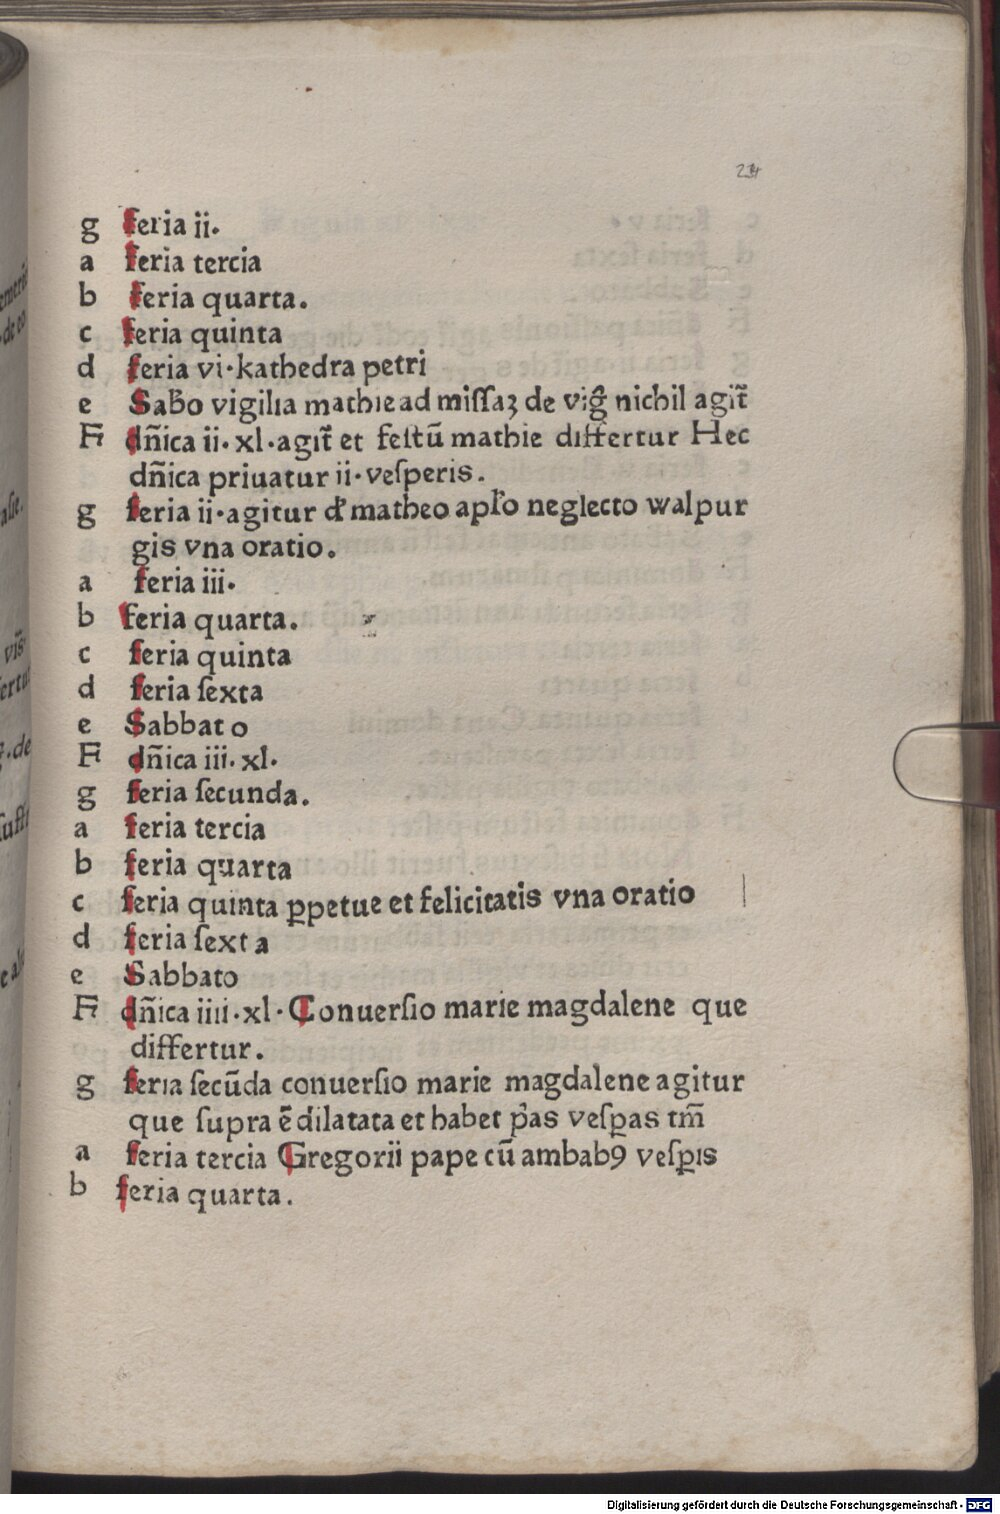 234
g feria ii.
a feria tercia
b feria quarta.
c feria quinta
d feria vi·kathedra petri
e Sabb̄o vigilia mathie ad miſſaꝫ de vig̃ nichil agit̃
F dñica ii. xl·agit̃ et feſtū mathie differtur Hec
dñica priuatur ii·veſperis.
g feria ii·agitur d̕ matheo apl̕o neglecto walpur
gis vna oratio.
a feria iii·
b feria quarta.
c feria quinta
d feria ſexta
e Sabbato
F dñica iii. xl.
g feria ſecunda.
a feria tercia
b feria quarta
c feria quinta ꝑpetue et felicitatis vna oratio
d feria ſexta
e Sabbato
F dñica iiii·xl·Conuerſio marie magdalene que
differtur.
g feria ſecūda conuerſio marie magdalene agitur
que ſupra ē dilatata et habet p̄as veſꝑas tm̄
a feria tercia Gregorii pape cū ambabꝰ veſꝑis
b feria quarta.
Digitalisierung gefördert durch die Deutsche Forschungsgemeinschaft - DFG